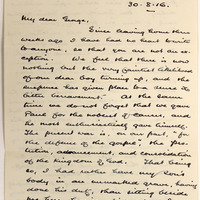 30.8.16.
My dear George,
Since leaving home three
weeks ago I have had no heart to write
to anyone, so that you are not an ex-
ception. We feel that there is now
nothing but the very faintest likelihood
of our dear boy turning up, and the
suspense has given place to a
bitter. At the same
time we do not forget that we gave
Paul for the noblest of causes, and
he most enthusiastically gave himself.
The present war is, on our part, "for
the defence of the gospel", the pro-
tection, advancement, and consolidation
of the kingdom of God. That being
so, I had rather have my son's
body in an unmarked grave, having
done his duty, than sitting beside
me